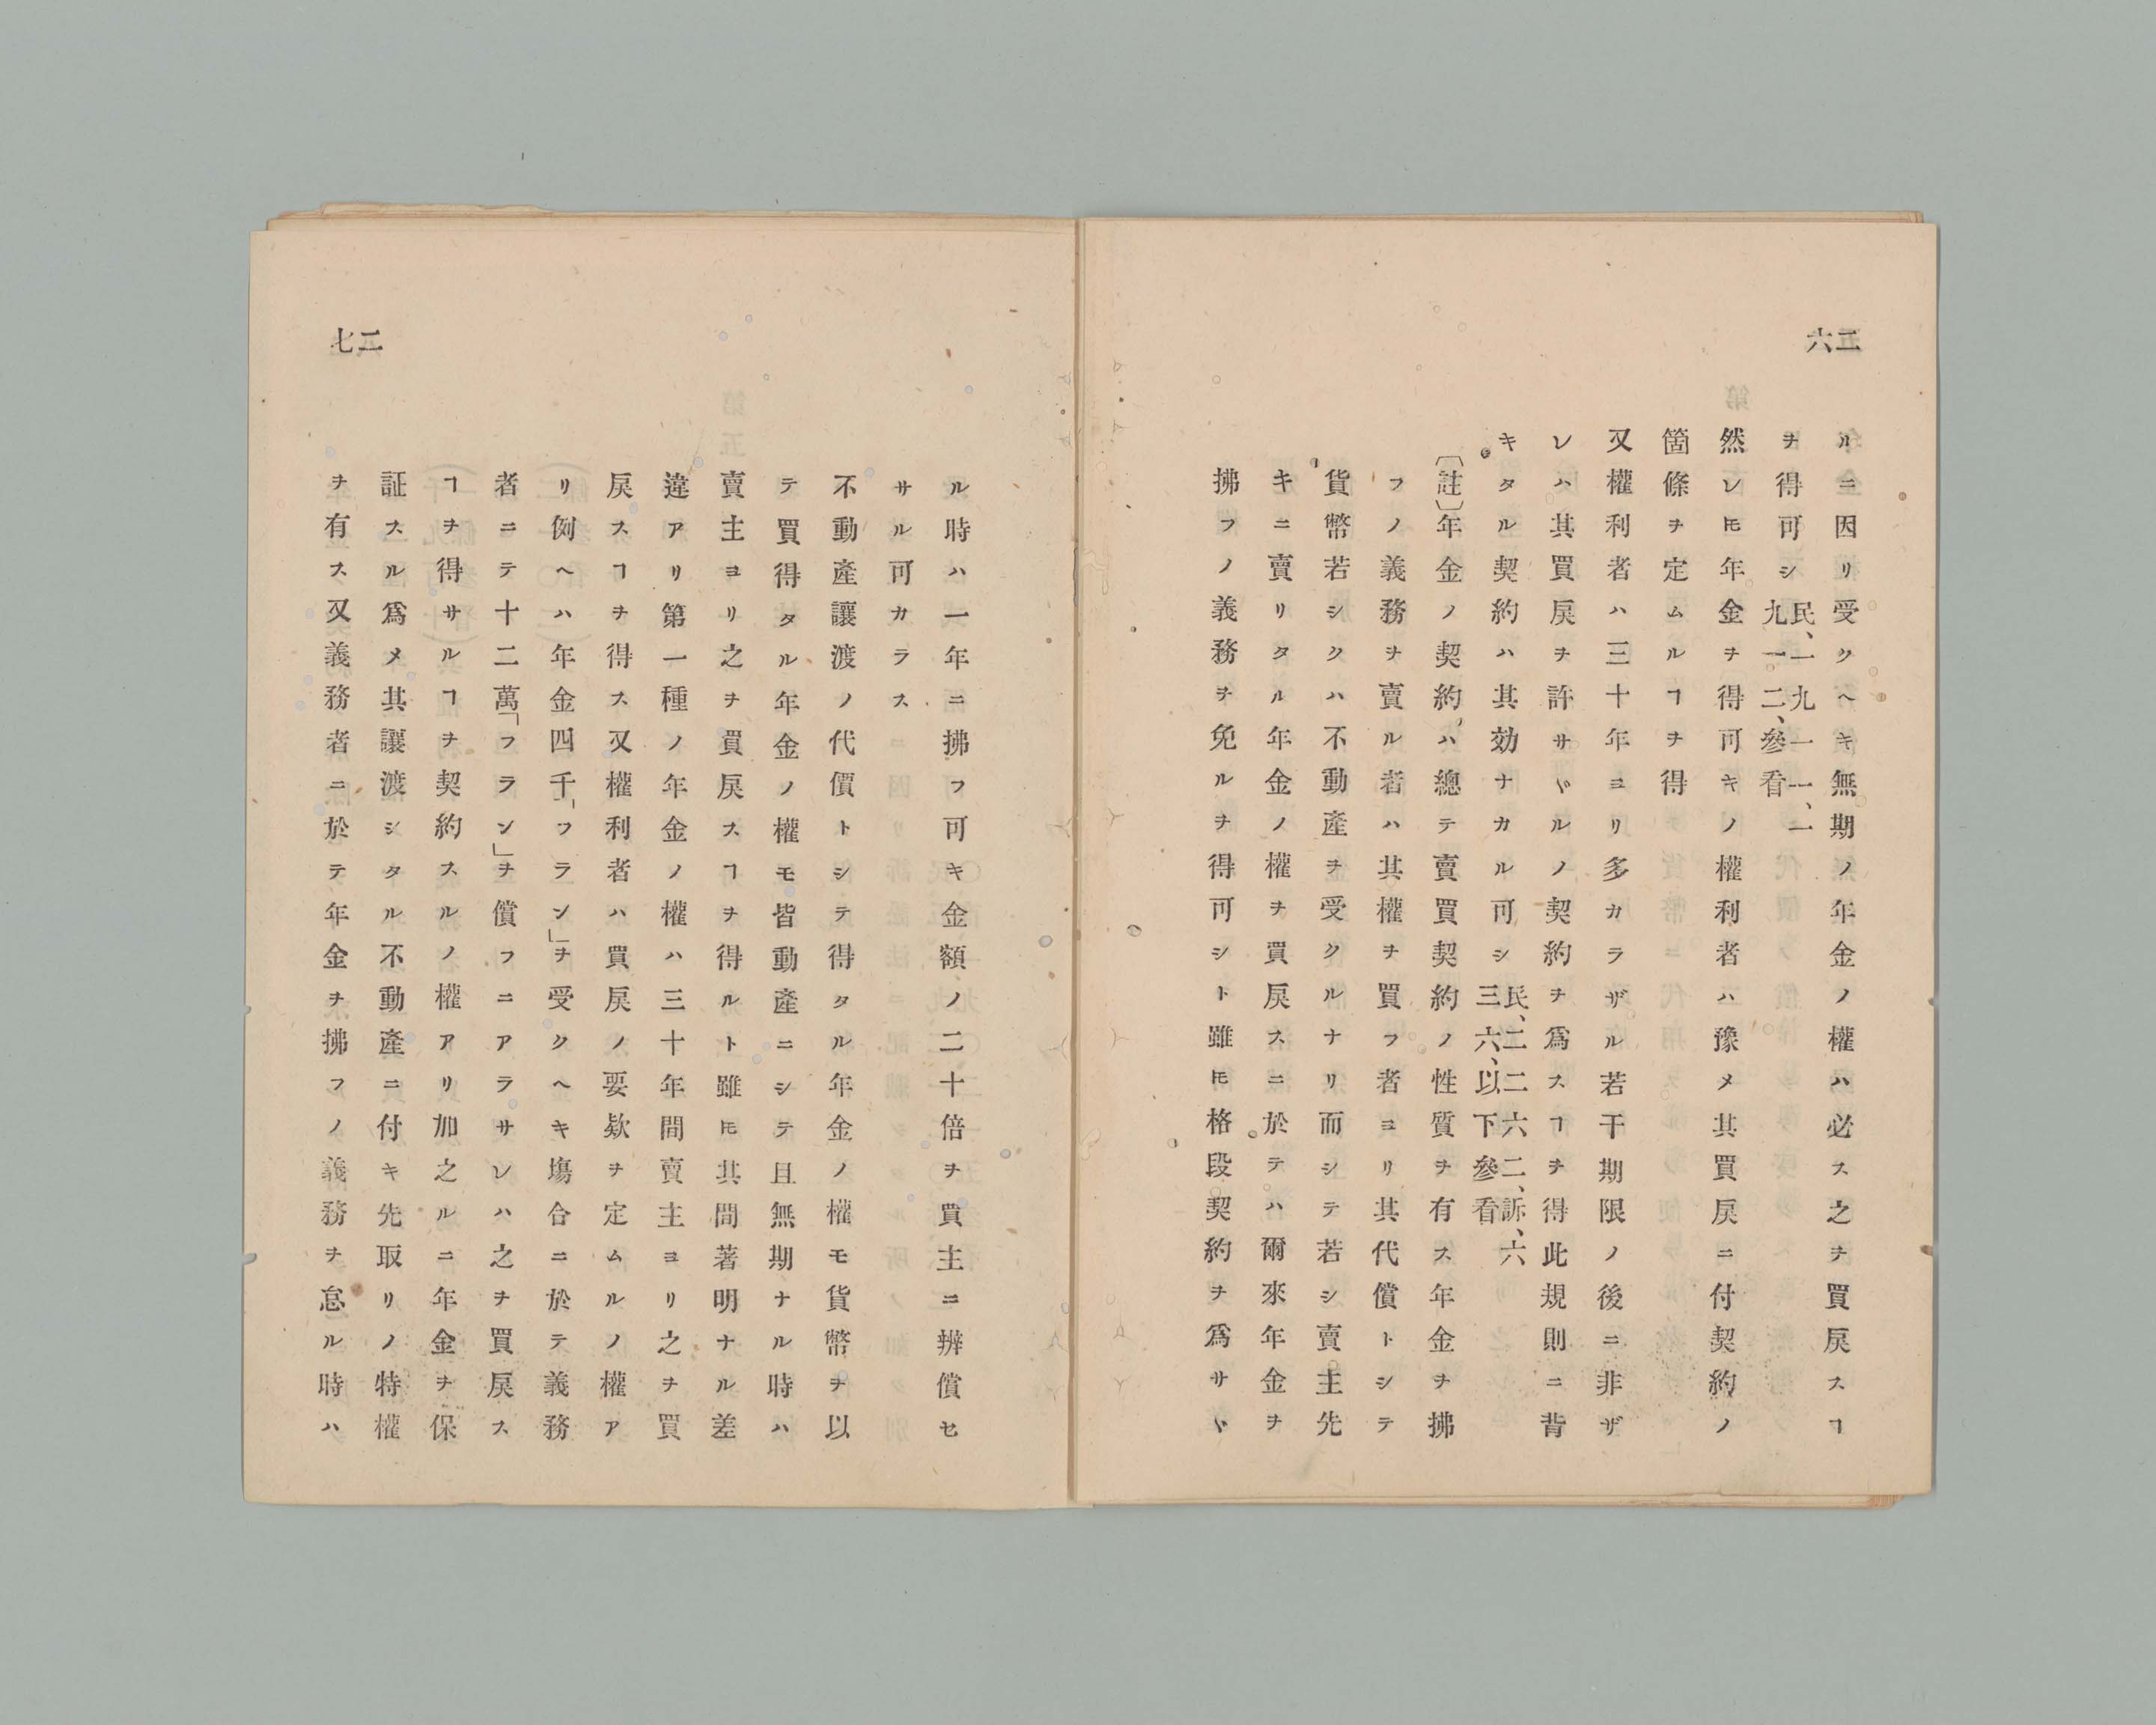 二六
ルニ因リ受クヘキ無期ノ年金ノ權ハ必ス之ヲ買戻スヿ
ヲ得可シ民、一九一一、一九一二、參看
然レ𪜈年金ヲ得可キノ權利者ハ豫メ其買戻ニ付契約ノ
箇條ヲ定ムルヿヲ得
又權利者ハ三十年ヨリ多カラザル若干期限ノ後ニ非ザ
レハ其買戻ヲ許サヾルノ契約ヲ爲スヿヲ得此規則ニ背
キタル契約ハ其効ナカル可シ民、二二六二、訴、六三六、以下參看
〔註〕年金ノ契約ハ總テ賣買契約ノ性質ヲ有ス年金ヲ拂
フノ義務ヲ賣ル者ハ其權ヲ買フ者ヨリ其代償トシテ
貨幣若シクハ不動產ヲ受クルナリ而シテ若シ賣主先
キニ賣リタル年金ノ權ヲ買戻スニ於テハ爾來年金ヲ
拂フノ義務ヲ免ルヲ得可シト雖𪜈格段契約ヲ爲サヾ
ル時ハ一年ニ拂フ可キ金額ノ二十倍ヲ買主ニ辨償セ
サル可カラス
不動產讓渡ノ代價トシテ得タル年金ノ權モ貨幣ヲ以
テ買得タル年金ノ權モ皆動產ニシテ且無期ナル時ハ
賣主ヨリ之ヲ買戻スヿヲ得ルト雖𪜈其間著明ナル差
違アリ第一種ノ年金ノ權ハ三十年間賣主ヨリ之ヲ買
戻スヿヲ得ス又權利者ハ買戻ノ要欵ヲ定ムルノ權ア
リ例ヘハ年金四千「フラン」ヲ受クヘキ塲合ニ於テ義務
者ニテ十二萬「フラン」ヲ償フニアラサレハ之ヲ買戻ス
ヿヲ得サルヿヲ契約スルノ權アリ加之ルニ年金ヲ保
証スル爲メ其讓渡シタル不動產ニ付キ先取リノ特權
ヲ有ス又義務者ニ於テ年金ヲ拂フノ義務ヲ怠ル時ハ
二七